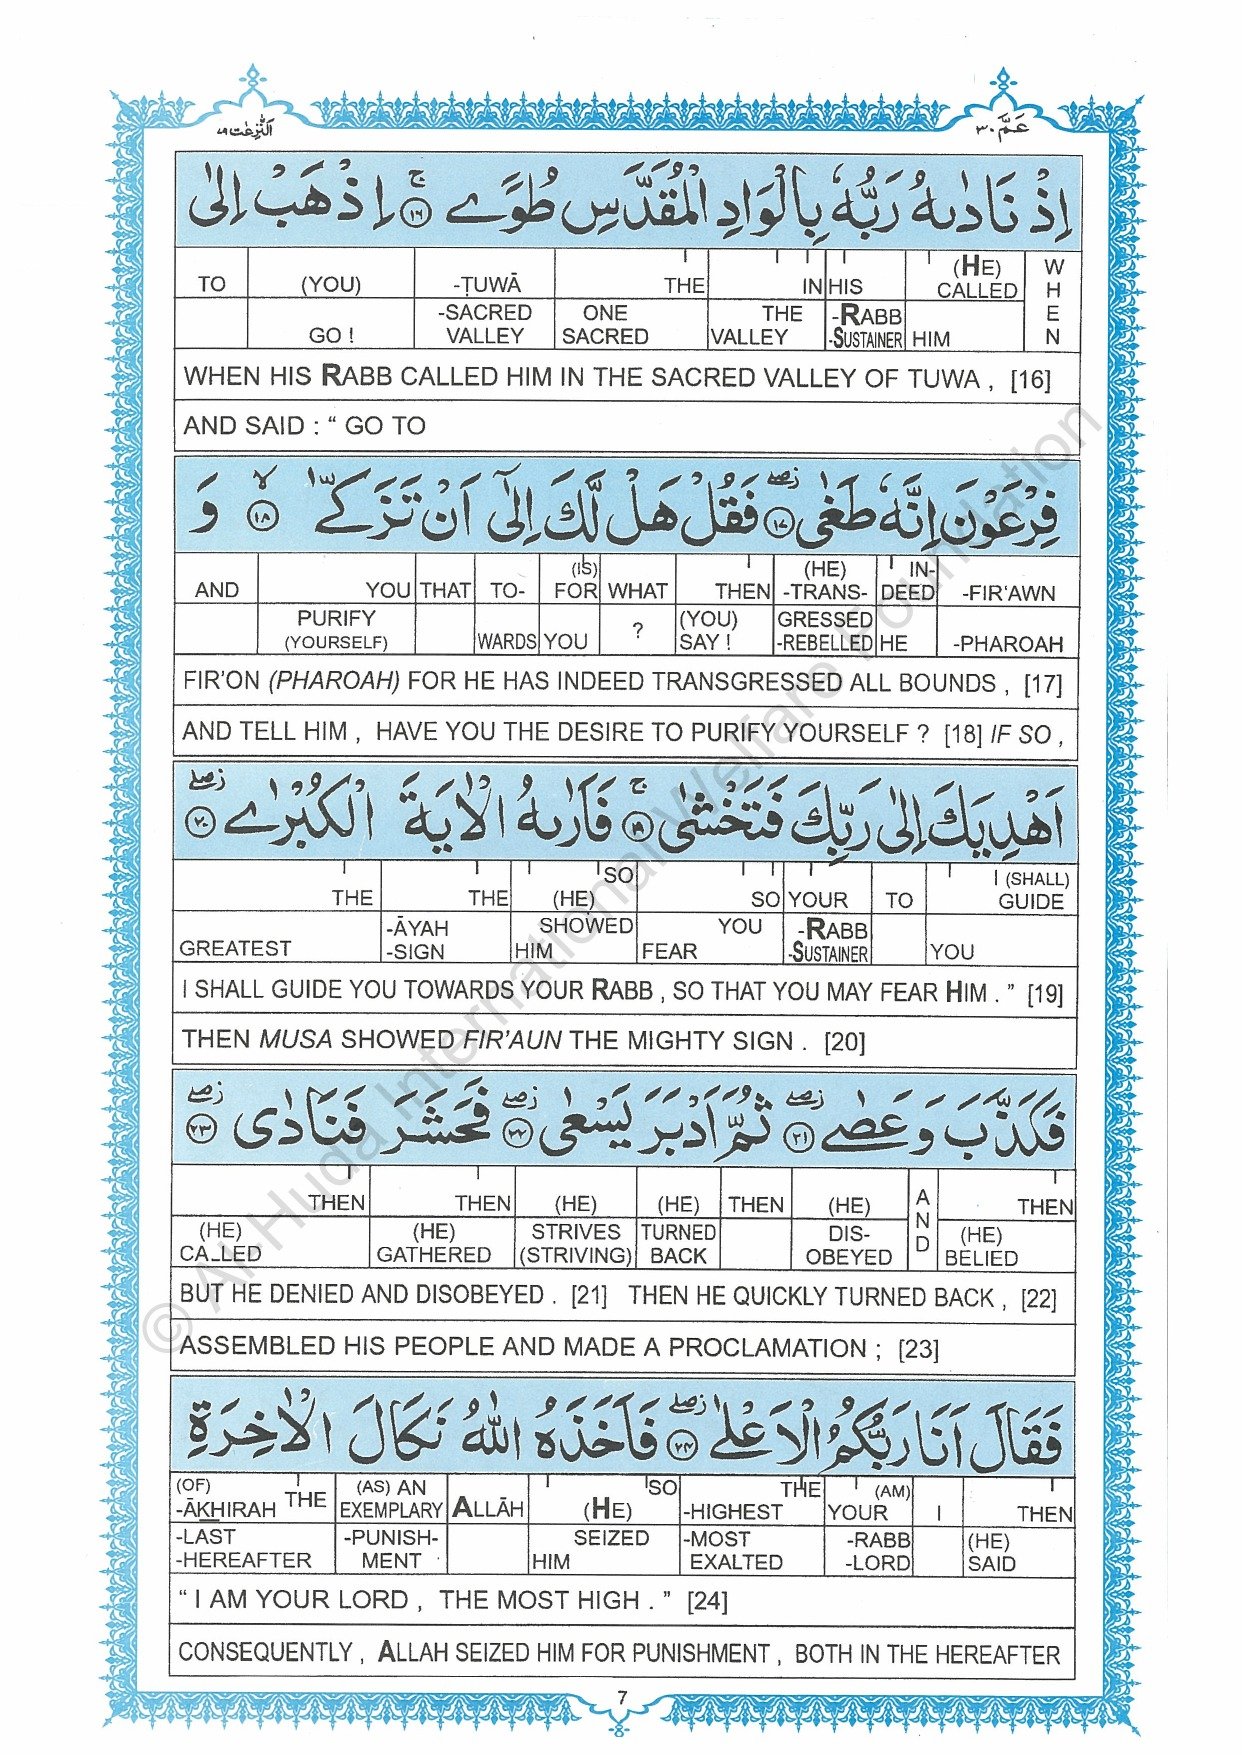 عَمَّ ٣٠
اَلنّٰزِعٰت ٧٩
اِذْ نَادٰىهُ رَبُّهٗ بِالْوَادِ الْمُقَدَّسِ طُوًى ۚ ﴿١٦﴾ اِذْهَبْ اِلٰى
TO (YOU) -ṬUWĀ THE IN HIS (HE) CALLED WHEN
GO ! -SACRED VALLEY ONE SACRED THE VALLEY -RABB -SUSTAINER HIM
WHEN HIS RABB CALLED HIM IN THE SACRED VALLEY OF TUWA , [16]
AND SAID : “ GO TO
فِرْعَوْنَ اِنَّهٗ طَغٰى ۖ ﴿١٧﴾ فَقُلْ هَلْ لَّكَ اِلٰٓى اَنْ تَزَكّٰى ۙ ﴿١٨﴾ وَ
AND YOU THAT TO- (IS) FOR WHAT THEN (HE) -TRANS- IN- DEED -FIR'AWN
PURIFY (YOURSELF) WARDS YOU ? (YOU) SAY ! GRESSED -REBELLED HE -PHAROAH
FIR'ON (PHAROAH) FOR HE HAS INDEED TRANSGRESSED ALL BOUNDS , [17]
AND TELL HIM , HAVE YOU THE DESIRE TO PURIFY YOURSELF ? [18] IF SO ,
اَهْدِيَكَ اِلٰى رَبِّكَ فَتَخْشٰى ۚ ﴿١٩﴾ فَاَرٰىهُ الْاٰيَةَ الْكُبْرٰى ۖ ﴿٢٠﴾
THE THE SO (HE) SO YOUR TO I (SHALL) GUIDE
GREATEST -ĀYAH -SIGN SHOWED HIM YOU FEAR -RABB -SUSTAINER YOU
I SHALL GUIDE YOU TOWARDS YOUR RABB , SO THAT YOU MAY FEAR HIM . ” [19]
THEN MUSA SHOWED FIR'AUN THE MIGHTY SIGN . [20]
فَكَذَّبَ وَ عَصٰى ۖ ﴿٢١﴾ ثُمَّ اَدْبَرَ يَسْعٰى ۖ ﴿٢٢﴾ فَحَشَرَ فَنَادٰى ۖ ﴿٢٣﴾
THEN THEN (HE) (HE) THEN (HE) AND THEN
(HE) CALLED (HE) GATHERED STRIVES (STRIVING) TURNED BACK DIS- OBEYED (HE) BELIED
BUT HE DENIED AND DISOBEYED . [21] THEN HE QUICKLY TURNED BACK , [22]
ASSEMBLED HIS PEOPLE AND MADE A PROCLAMATION ; [23]
فَقَالَ اَنَا رَبُّكُمُ الْاَعْلٰى ۖ ﴿٢٤﴾ فَاَخَذَهُ اللّٰهُ نَكَالَ الْاٰخِرَةِ
(OF) -ĀKHIRAH THE (AS) AN EXEMPLARY ALLĀH (HE) SO -HIGHEST THE YOUR (AM) I THEN
-LAST -HEREAFTER -PUNISH- MENT SEIZED HIM -MOST EXALTED -RABB -LORD (HE) SAID
“ I AM YOUR LORD , THE MOST HIGH . ” [24]
CONSEQUENTLY , ALLAH SEIZED HIM FOR PUNISHMENT , BOTH IN THE HEREAFTER
7
© Al-Huda International Welfare Foundation